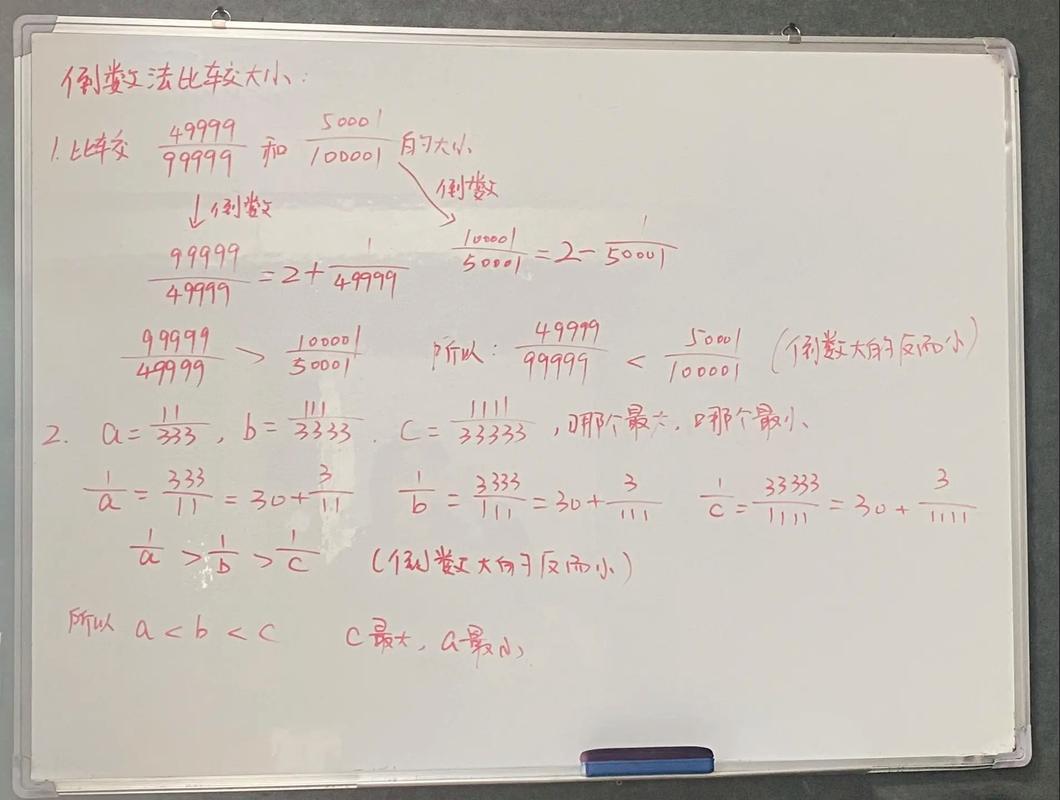 倒数法比较大小：
1. 比较 49999/99999 和 50001/100001 的大小
↓倒数 ↘倒数
99999/49999 = 2 + 1/49999 100001/50001 = 2 - 1/50001
99999/49999 > 100001/50001 所以：49999/99999 < 50001/100001 (倒数大的反而小)
2. a = 11/333, b = 111/3333. c = 1111/33333, 哪个最大, 哪个最小、
1/a = 333/11 = 30 + 3/11 1/b = 3333/111 = 30 + 3/111 1/c = 33333/1111 = 30 + 3/1111
1/a > 1/b > 1/c (倒数大的反而小)
所以 a < b < c c最大, a最小,